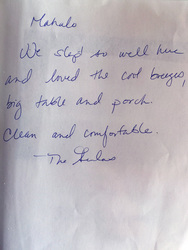 Mahalo
We slept so well here
and loved the cool breezes,
big table and porch.
Clean and comfortable.
—The